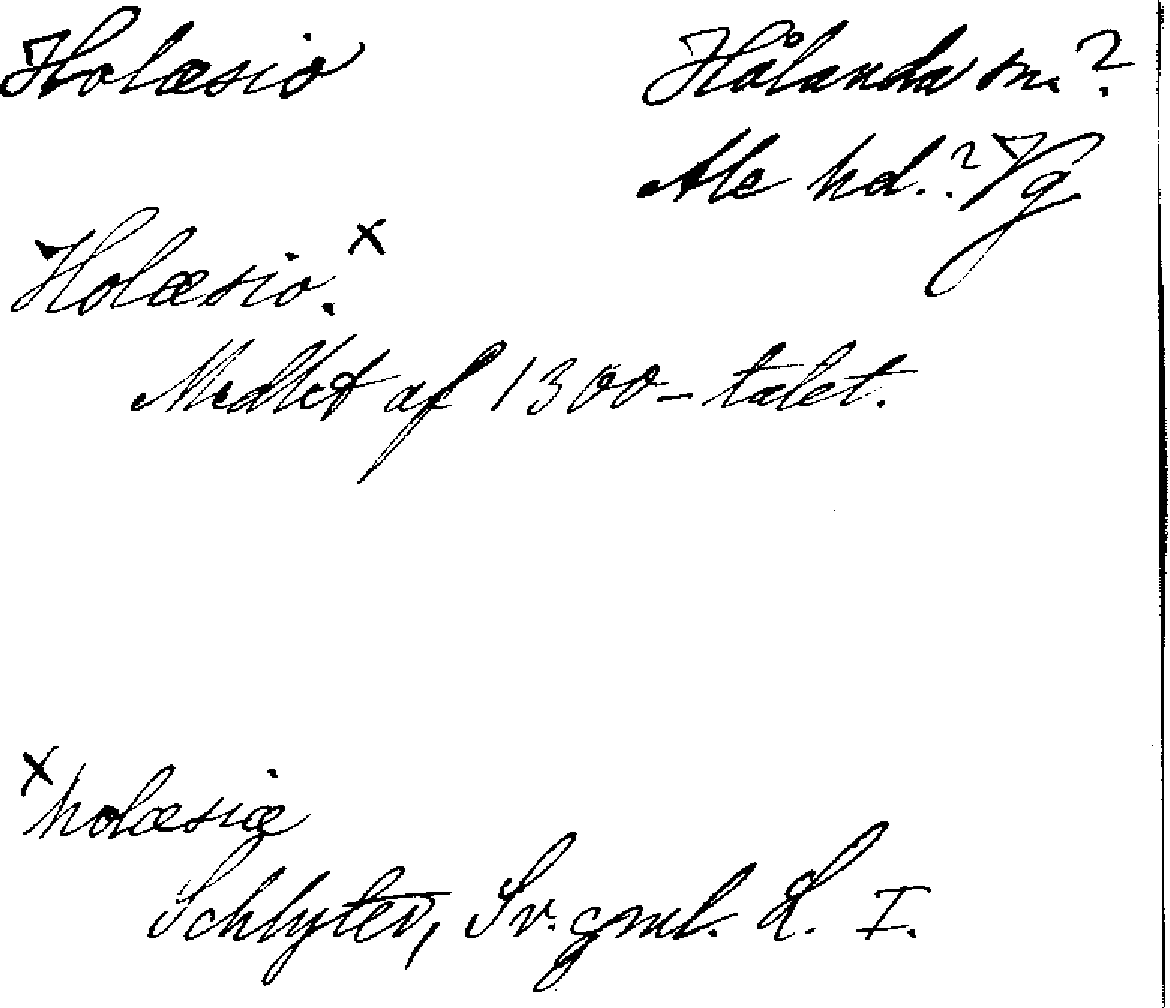 Holæsio
Hålanda sn.?
Ale hd.? Vg
Holæsio.x
Medlet af 1300-talet.
x holæsiæ
Schlyter, Sv. gml. L. I.